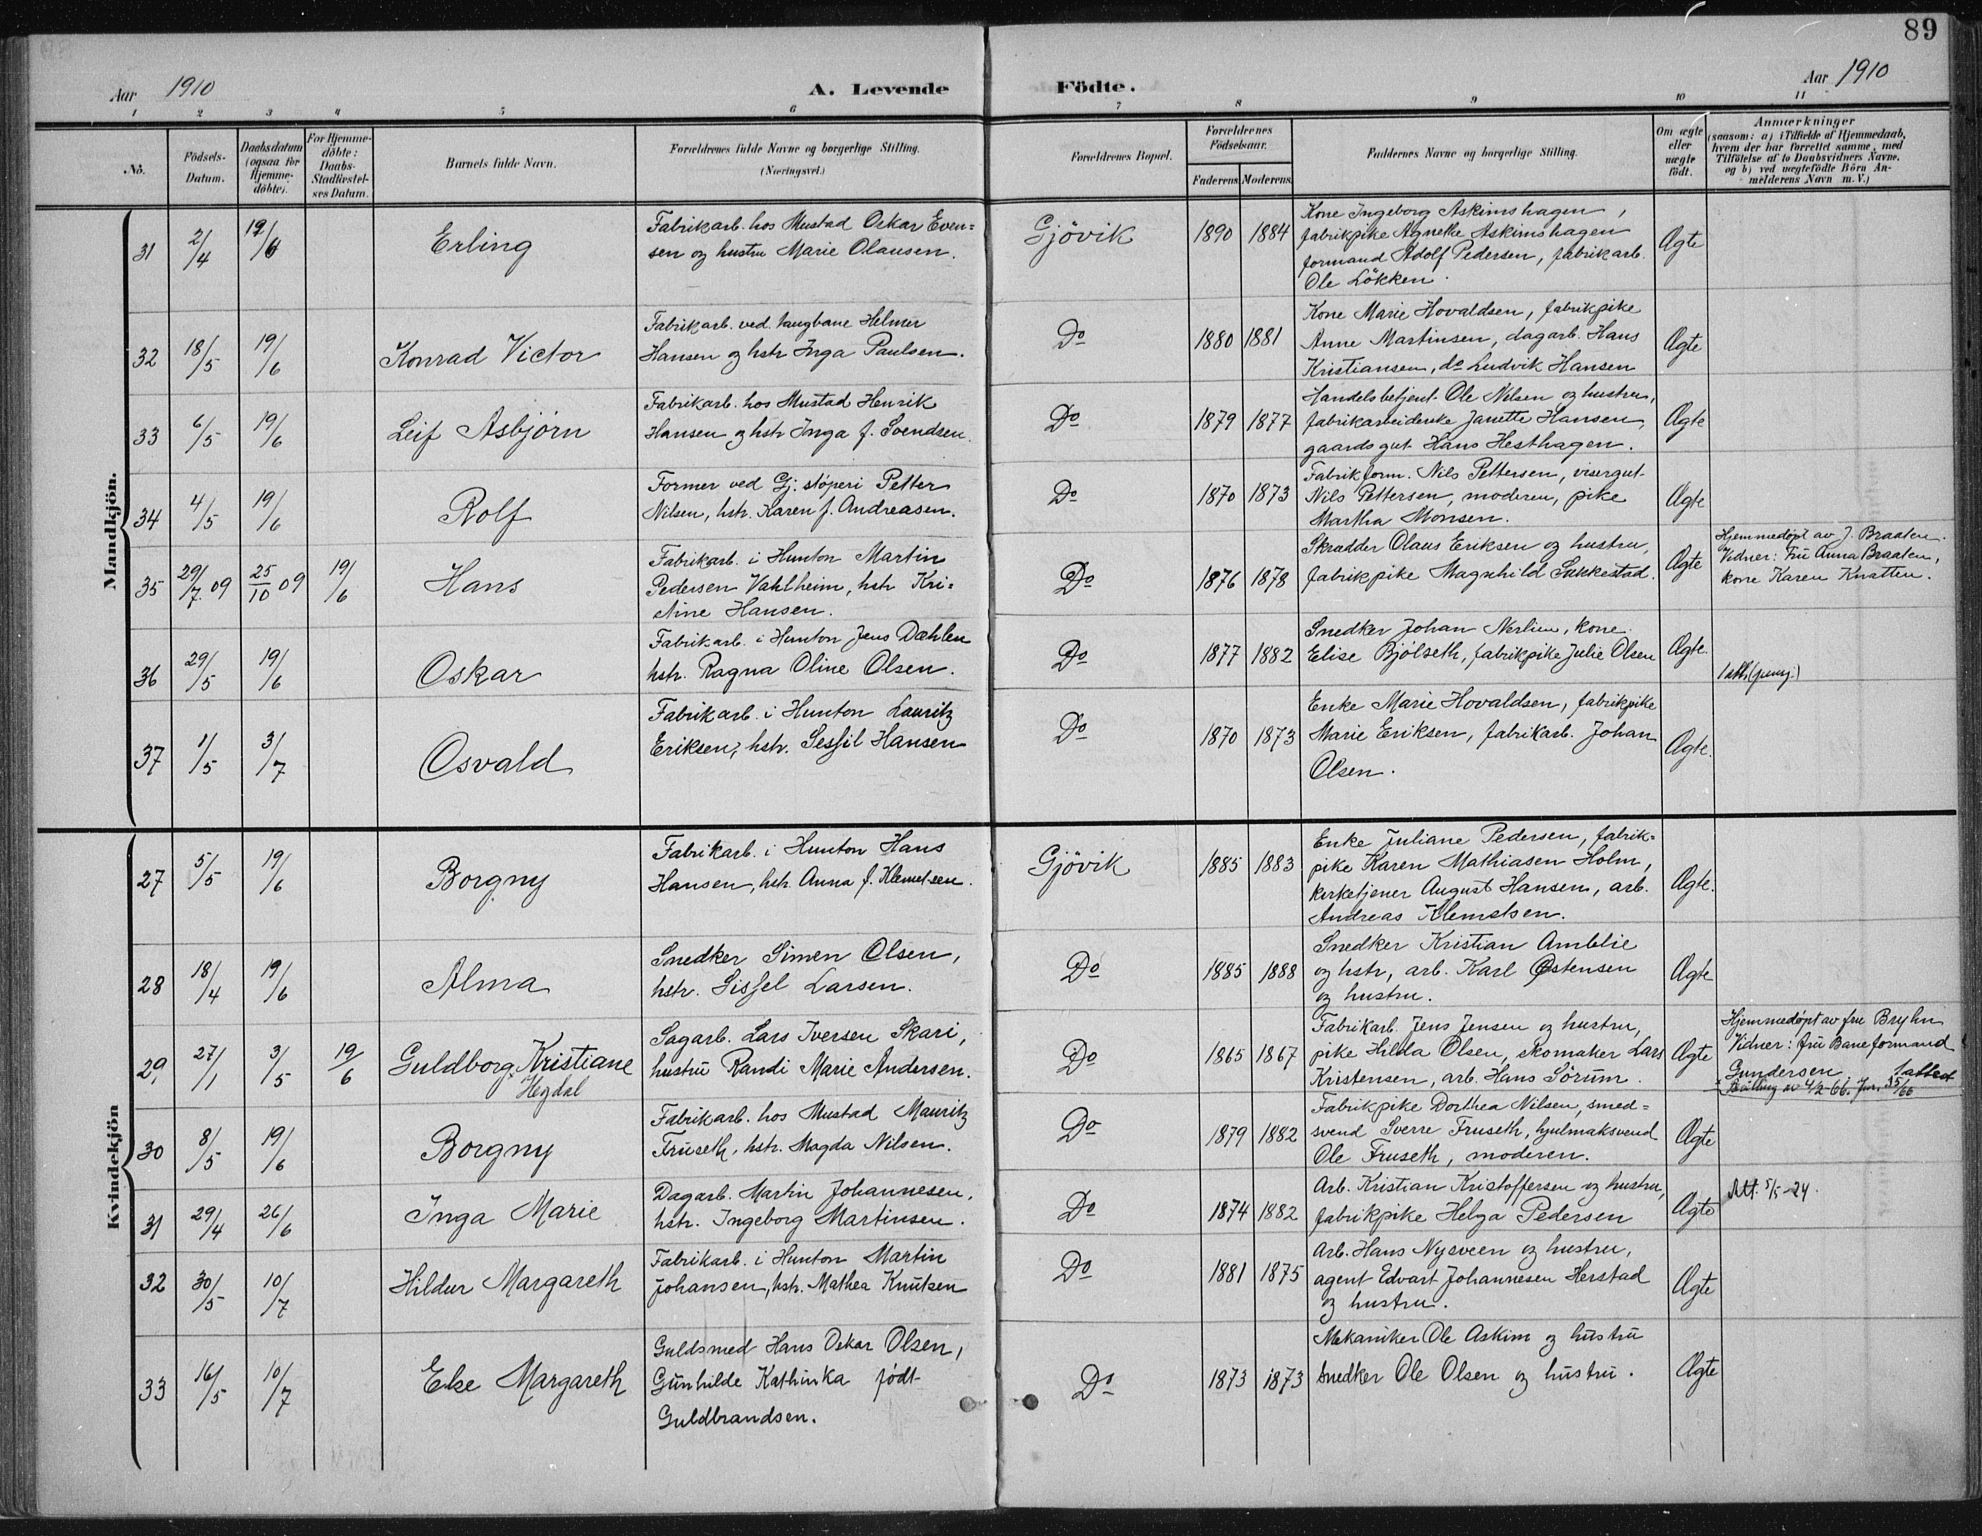 89
Aar 1910
A. Levende Födte.
Aar 1910
1 2 3 4 5 6 7 8 9 10 11
No.
Födsels-
Datum.
Daabsdatum
(ogsaa for
Hjemme-
döbte).
For Hjemme-
döbte:
Daabs-
Stadfæstel-
ses Datum.
Barnets fulde Navn.
Forældrenes fulde Navne og borgerlige Stilling.
(Næringsvei.)
Forældrenes Bopæl.
Forældrenes
Födselsaar.
Faderens. Moderens.
Faddernes Navne og borgerlige Stilling.
Om ægte
eller
uægte
födt.
Anmærkninger
(saasom: a) i Tilfælde af Hjemmedaab,
hvem der har forrettet samme, med
Tilföielse af to Daabsvidners Navne,
og b) ved uægtefödte Börn An-
melderens Navn m. V.)
Mandkjön.
31 2/4 19/6 Erling
Fabrikarb. hos Mustad Oskar Even=
sen og hustru Marie Olausen.
Gjövik 1890 1884
Kone Ingeborg Askimshagen,
fabrikpike Agnethe Askimshagen
formand Adolf Pedersen, fabrikarb.
Ole Lökken.
Ægte
32 18/5 19/6 Konrad Victor
Fabrikarb. ved taugbane Helmer
Hansen og hstr Inga Paulsen.
Do 1880 1881
Kone Marie Hovaldsen, fabrikpike
Anne Martinsen, dagarb. Hans
Kristiansen, do Ludvik Hansen
Ægte
33 6/5 19/6 Leif Asbjørn
Fabrikarb. hos Mustad Henrik
Hansen og hstr Inga f. Svendsen.
Do 1879 1877
Handelsbetjent Ole Nilsen og hustru,
fabrikarbeiderske Janette Hansen,
gaardsgut Hans Hesthagen.
Ægte
34 4/5 19/6 Rolf
Former ved Gj. støperi Petter
Nilsen, hstr. Karen f. Andreasen.
Do 1870 1873
Fabrikform. Nils Pettersen, visergut
Nils Pettersen, moderen, pike
Martha Monsen.
Ægte
35 29/7 09 25/10 09 19/6 Hans
Fabrikarb. i Hunton Martin
Pedersen Vahlheim, hstr Kri-
stine Hansen.
Do 1876 1878
Skrædder Olaus Eriksen og hustru,
fabrikpike Magnhild Sukkestad.
Ægte
Hjemmedøpt av J. Braaten.
Vidner: Fru Anna Braaten,
kone Karen Knatten.
36 29/5 19/6 Oskar
Fabrikarb. i Hunton Jens Dæhlen
hstr. Ragna Oline Olsen.
Do 1877 1882
Snedker Johan Nerlien, kone
Elise Bjölseth, fabrikpike Julie Olsen
Ægte.
37 1/5 3/7 Osvald
Fabrikarb. i Hunton Lauritz
Eriksen, hstr. Sessil Hansen
Do 1870 1873
Enke Marie Hovaldsen, fabrikpike
Marie Eriksen, fabrikarb. Johan
Olsen.
Ægte.
Kvindekjön
27 5/5 19/6 Borgny
Fabrikarb. i Hunton Hans
Hansen, hstr. Anna f. Klemetsen.
Gjövik 1885 1883
Enke Juliane Pedersen, fabrik=
pike Karen Mathiasen Holm,
kirketjener August Hansen, arb.
Andreas Klemetsen.
Ægte.
28 18/4 19/6 Alma
Snedker Simen Olsen,
hstr. Sissel Larsen.
Do 1885 1888
Snedker Kristian Amblie
og hstr, arb. Karl Østensen
og hustru.
Ægte
29, 27/1 3/5 19/6 Guldborg Kristiane
Hegdal
Sagarb. Lars Iversen Skari,
hustru Randi Marie Andersen.
Do 1865 1867
Fabrikarb. Jens Jensen og hustru,
pike Hilda Olsen, skomaker Lars
Kristensen, arb. Hans Sörum.
Ægte
Hjemmedøpt av fru Bryhn
Vidner: fru Baneformand
Gundersen. 1 attest
Bevilling av 4/2-66. Jnr. 35/66
30 8/5 19/6 Borgny
Fabrikarb. hos Mustad Mauritz
Fruseth, hstr. Magda Nilsen.
Do 1879 1882
Fabrikpike Dorthea Nilsen, smed=
svend Sverre Fruseth, hjulmaksvend
Ole Fruseth, moderen.
Ægte
31 29/4 26/6 Inga Marie
Dagarb. Martin Johannesen,
hstr. Ingeborg Martinsen.
Do 1874 1882
Arb. Kristian Kristoffersen og hustru,
fabrikpike Helga Pedersen
Ægte
Att. 5/5-24.
32 30/5 10/7 Hildur Margareth
Fabrikarb. i Hunton Martin
Johansen, hstr. Mathea Knutsen
Do 1881 1875
Arb. Hans Nysveen og hustru,
agent Edvart Johannesen Herstad
og hustru.
Ægte
33 16/5 10/7 Else Margareth
Guldsmed Hans Oskar Olsen,
Gunhilde Kathinka født
Guldbrandsen.
Do 1873 1873
Mekaniker Ole Askim og hustru
Snedker Ole Olsen og hustru.
Ægte